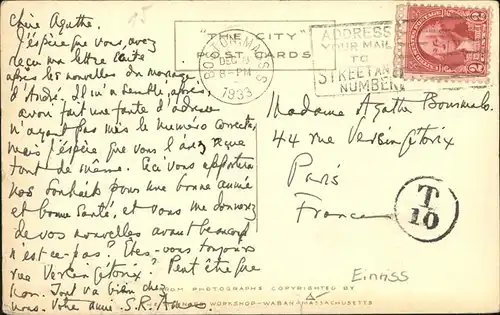 15
Chère Agathe.
J'espère que vous, avez
reçu ma lettre écrite
après les nouvelles du mariage
d'André. Il m'a semblé, après,
avoir fait une faute d'adresse
n'ayant pas mis le numéro correct,
mais j'espère que vous l'avez reçue
tout de même. Ceci vous apportera
nos souhaits pour une bonne année
et bonne santé, et vous me donnerez
de vos nouvelles avant beaucoup
n'est-ce-pas? Êtes-vous toujours
rue Vercingétorix? Peut être que
non. Tout va bien chez
nous. Votre amie S.R.
"THE CITY"
POST CARDS
BOSTON, MASS
DEC
8-PM
1933
ADDRESS
YOUR MAIL
TO
STREET AND
NUMBER
2 2
Madame Agathe
44 rue Vercingétorix
Paris
France
T
10
Einriss
PHOTOGRAPHS COPYRIGHTED BY
WORKSHOP-WABAN-MASSACHUSETTS